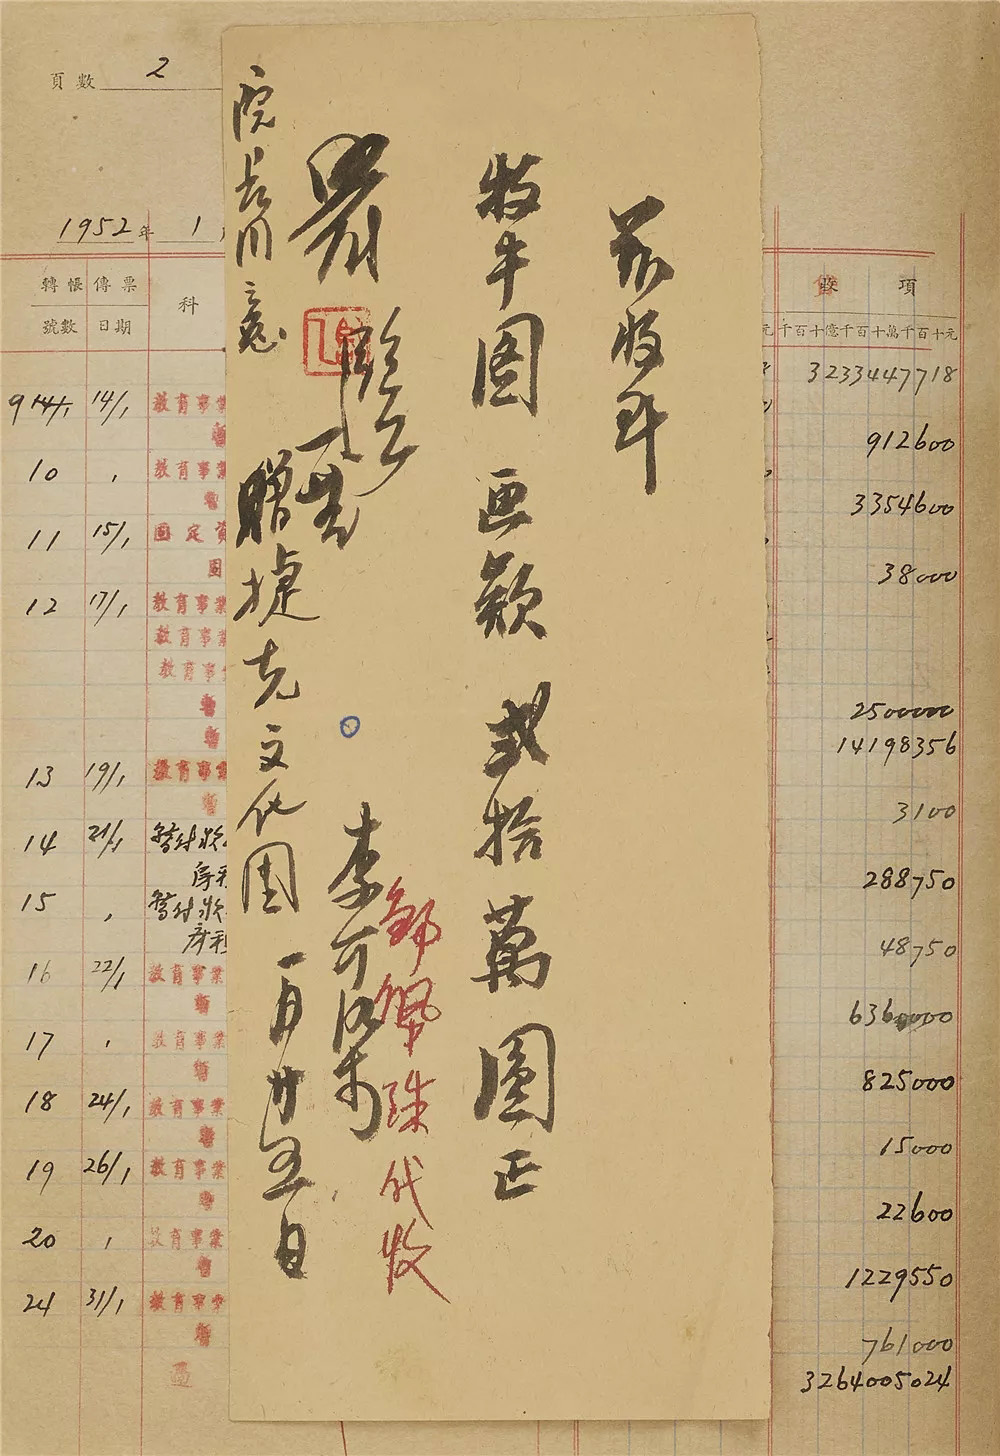 茲收到
牧牛圖 画欵 貳拾萬圓正
鄒佩珠代收
李可染
院長同意
贈捷克文化團 一月廿五日
頁數 2
1952年 1
轉帳 傳票 科
號數 日期
項
千百十億千百十萬千百十元
3233447718
14/1 教育事業
912600
10 〃 教育事業
3354600
11 15/1 固定資
38000
12 17/1 教育事業
教育事業
教育事
2500000
14198356
13 19/1 教育事業
3100
14 21/1 暫付款
288750
15 〃 暫付款
48750
16 22/1 教育事業
6360000
17 〃 教育事業
825000
18 24/1 教育事業
15000
19 26/1 教育事業
22600
20 〃 教育事業
1229550
24 31/1 教育事業
761000
3264005024